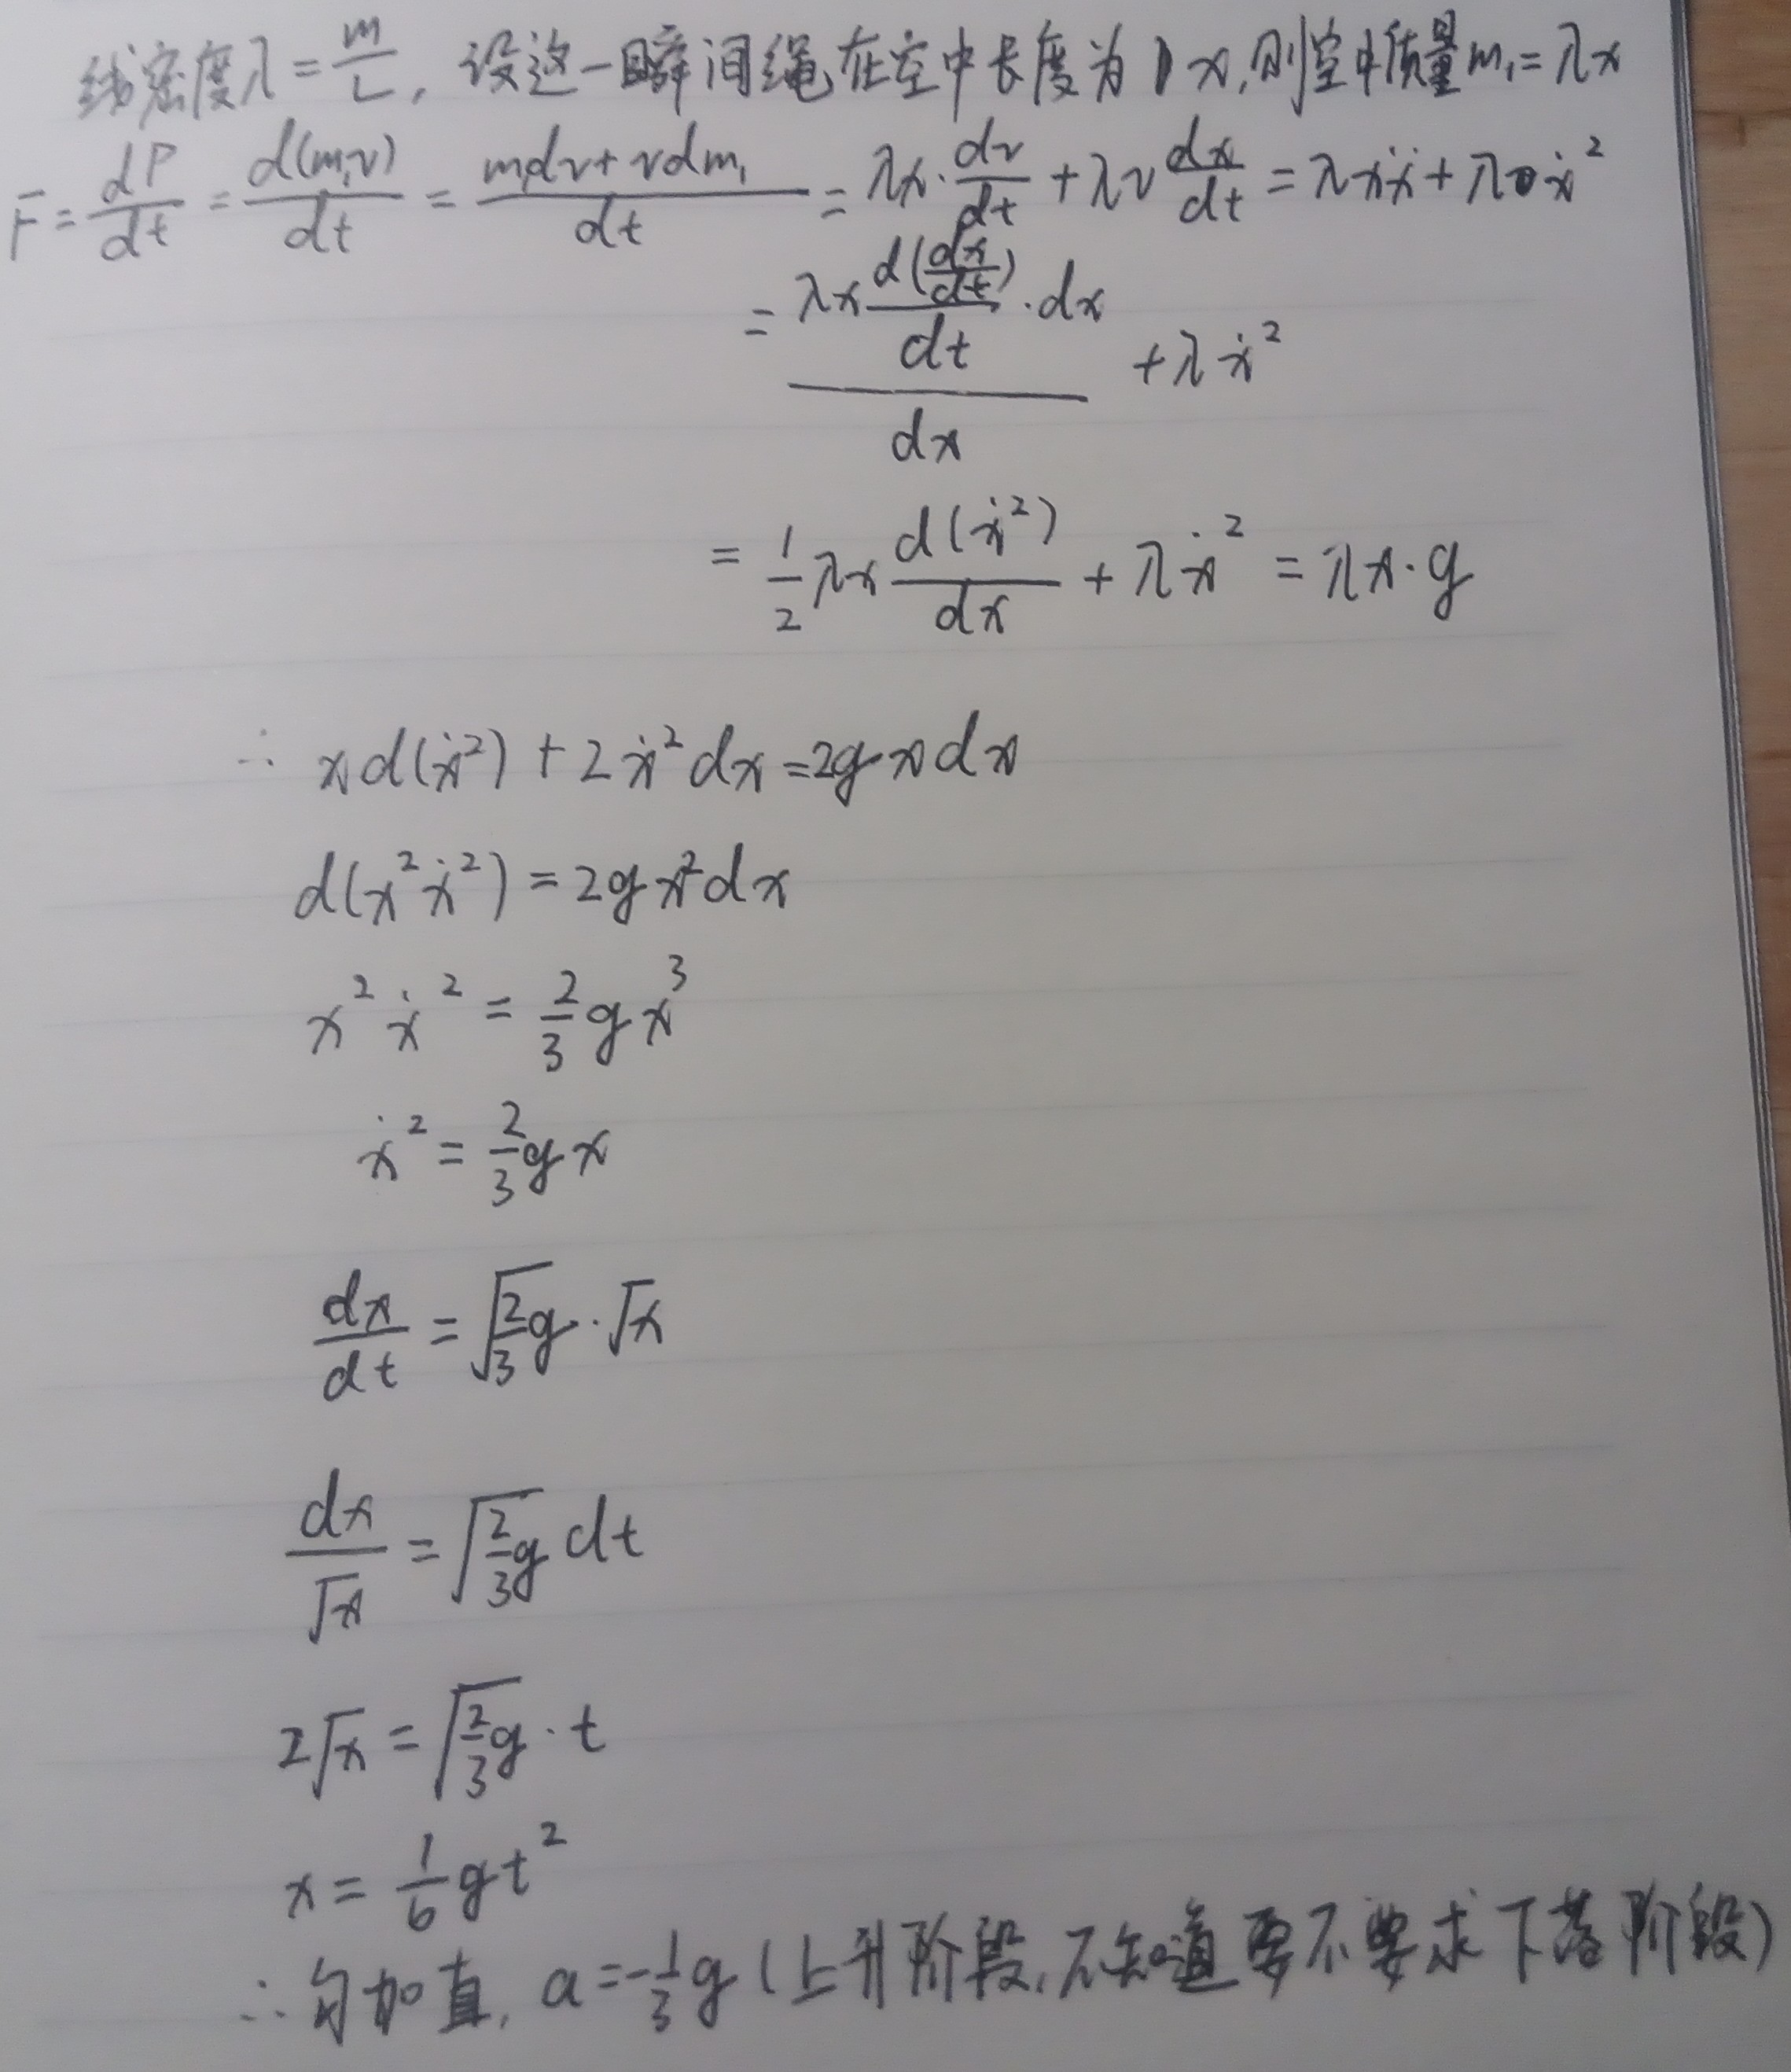 线密度λ=m/L, 设这一瞬间绳在空中长度为x,则空中质量m₁=λx
F=dP/dt=d(m₁v)/dt=(m₁dv+vdm₁)/dt=λx·dv/dt+λv dx/dt=λxẍ+λẋ²
=(λx d(dx/dt)/dt·dx)/dx+λẋ²
=1/2 λx d(ẋ²)/dx+λẋ²=λx·g
∴ xd(ẋ²)+2ẋ²dx=2gxdx
d(x²ẋ²)=2gx²dx
x²ẋ²=2/3 gx³
ẋ²=2/3 gx
dx/dt=√(2/3 g)·√x
dx/√x=√(2/3 g) dt
2√x=√(2/3 g)·t
x=1/6 gt²
∴匀加直, a=-1/3 g (上升阶段,不知道要不要求下落阶段)